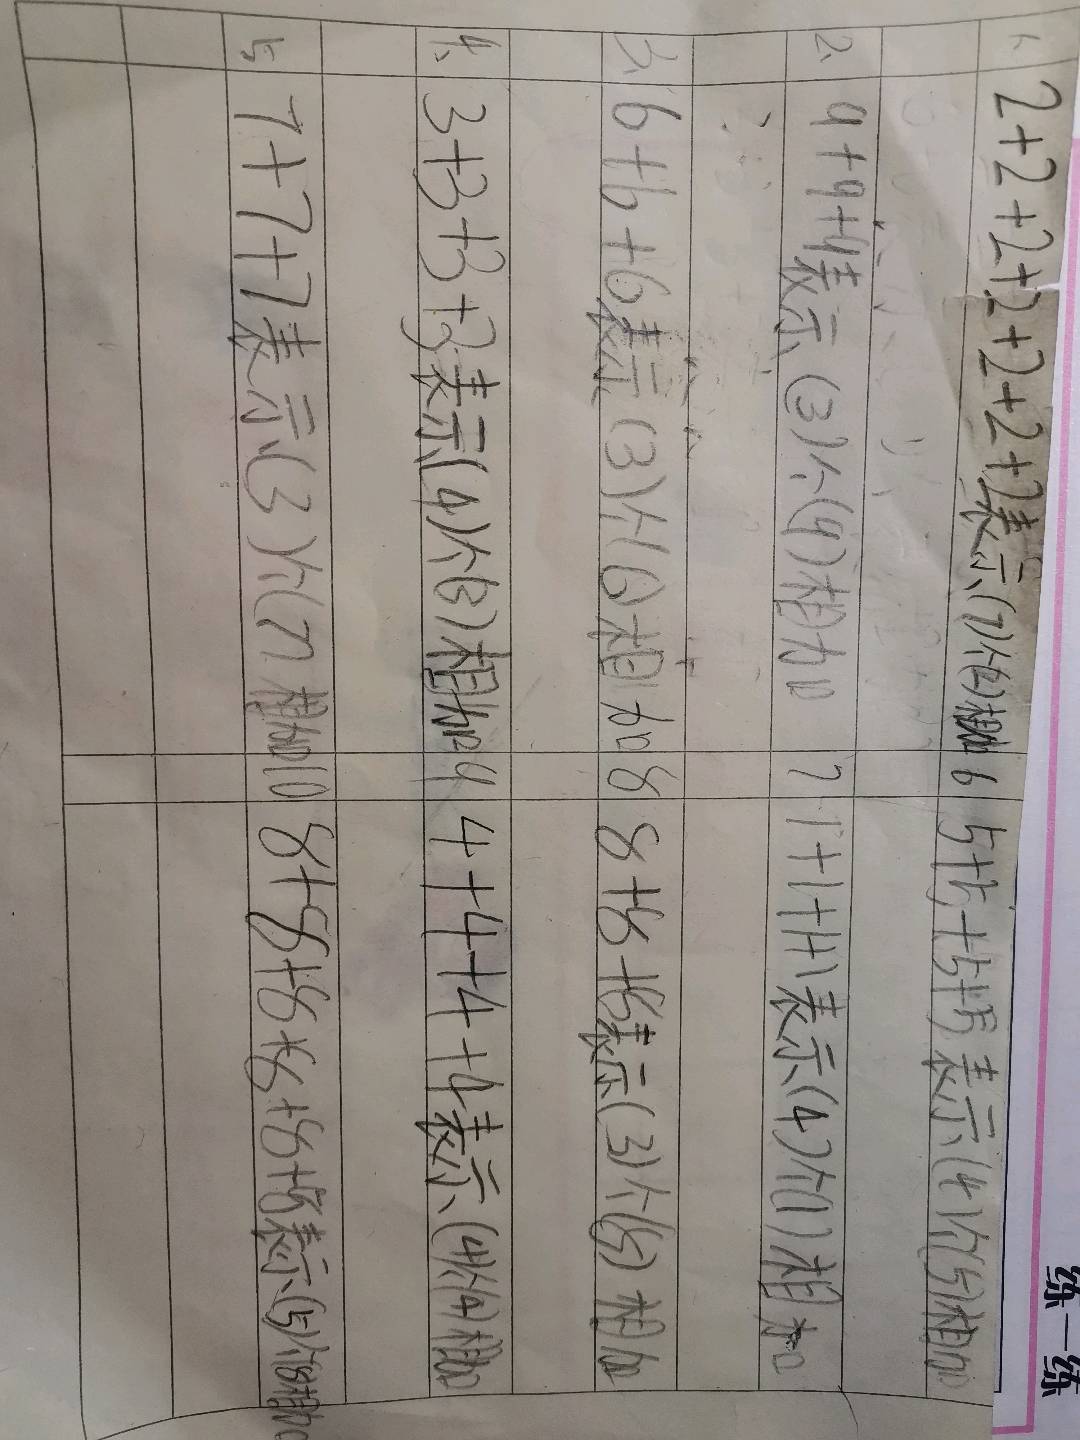 练一练
1、2+2+2+2+2+2+2表示(7)个(2)相加
6 5+5+5+5表示(4)个(5)相加
2、9+9+9表示(3)个(9)相加
7 1+1+1+1表示(4)个(1)相加
3、6+6+6表示(3)个(6)相加
8 8+8+8表示(3)个(8)相加
4、3+3+3+3表示(4)个(3)相加
9 4+4+4+4表示(4)个(4)相加
5 7+7+7表示(3)个(7)相加
10 8+8+8+8+8+8表示(5)个8相加